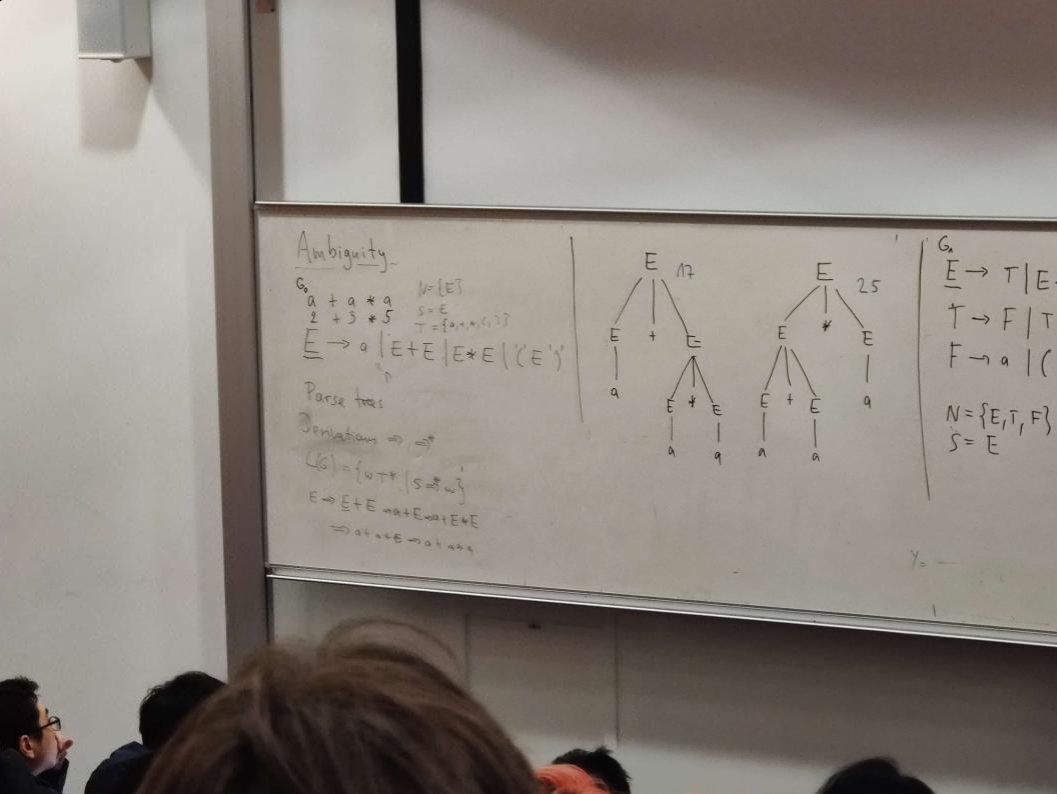 Ambiguity
G₀
a + a * a
2 + 3 * 5
N={E}
S=E
T={a,+,*,(,)}
E → a | E+E | E*E | '('E')'
Parse trees
Derivations ⇒ ⇒*
L(G) = {w T* | S ⇒* w}
E ⇒ E+E ⇒ a+E ⇒ a+E*E
⇒ a+a*E ⇒ a+a*a
E 17
E + E
a E * E
a a
E 25
E * E
E + E a
a a
G₁
E → T | E
T → F | T
F → a | (
N={E,T,F}
S= E